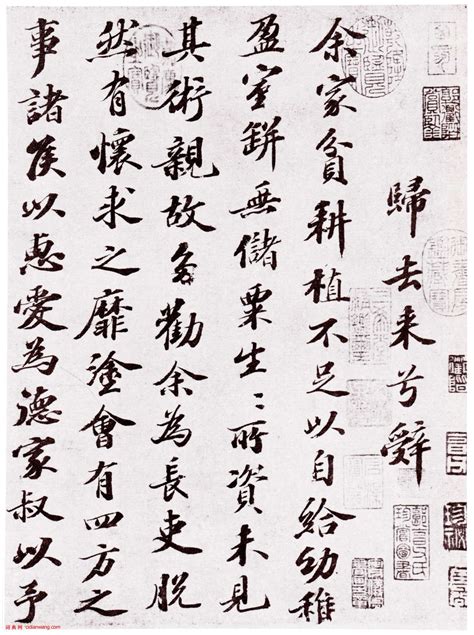 歸去来兮辭
余家貧耕植不足以自給幼稚
盈室缾無儲粟生〻所資未見
其術親故多勸余為長吏脱
然有懷求之靡塗會有四方之
事諸侯以惠愛為德家叔以予
词典网 cidianwang.com